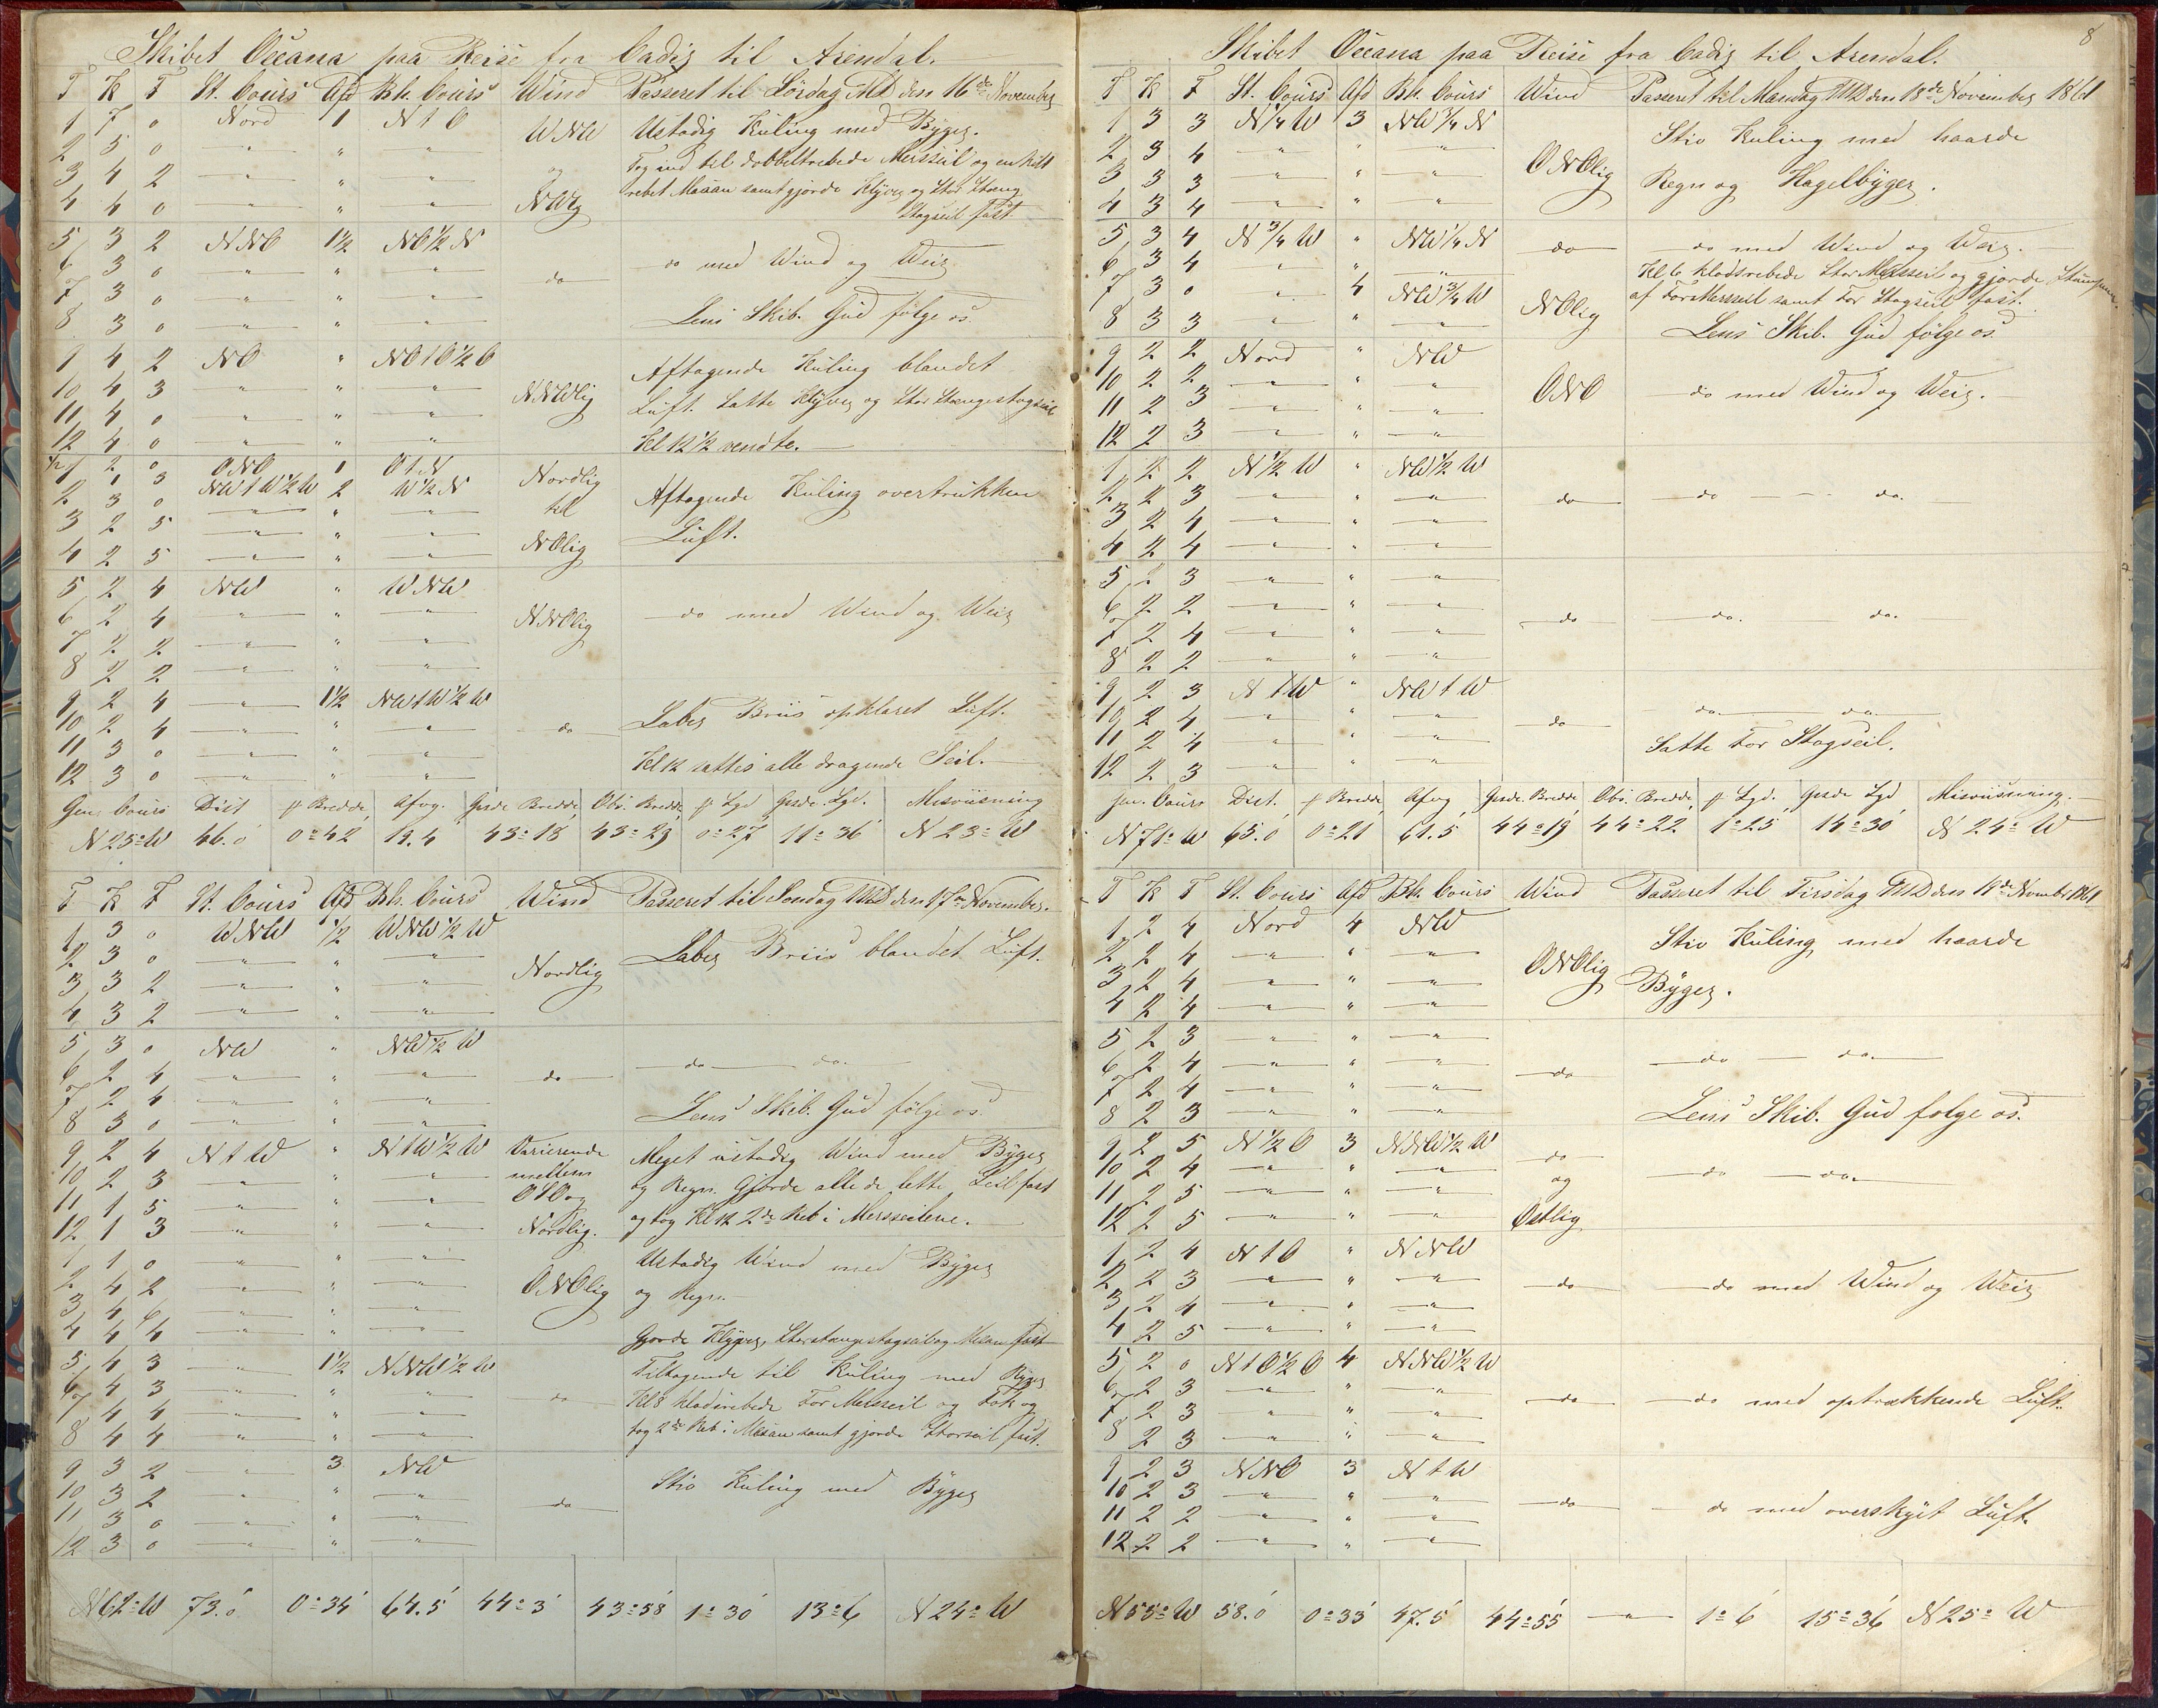 Skibet Océana paa Reise fra Cadiz til Arendal.
T K F St. Cours Afd Bh. Cours Wind Passeret til Lørdag MD den 16de November
1 7 0 Nord 1 N t O WNW Ustadig Kuling med Byger.
2 5 0 " " " og Tog ind til dobbeltrebede Mersseil og enkelt
3 4 2 " " " rebet Mesan samt gjorde Klyver og Stor Stæng
4 4 0 " " " NWlig Stagseil fast.
5 3 2 NNO 1½ NO½N
6 3 0 " " " do do med Wind og Veir
7 3 0 " " "
8 3 0 " " " Lens Skib. Gud følge os.
9 4 2 NO " NO t O½O Aftagende Kuling blandet
10 4 3 " " " NNWlig Luft. Satte Klyver og Stor Stængestagseil
11 4 0 " " "
12 4 0 " " " Kl 12½ vendte.
½ 2 0 ONO 1 O t N Nordlig
1 1 3 NW t W½W 2 W½N
2 3 0 " " " til Aftagende Kuling overtrukken
3 2 5 " " " NOlig Luft.
4 2 5 " " "
5 2 4 NW " WNW
6 2 4 " " " NNOlig do med Wind og Veir
7 2 2 " " "
8 2 2 " " "
9 2 4 " 1½ NW t W½W Laber Briis opklaret Luft.
10 2 4 " " " do
11 3 0 " " " Kl 12 sattes alle dragende Seil.
12 3 0 " " "
Gen. Cours Dist f. Bredde Afvg. Gisde Bredde Obs. Bredde f. Lgd Gisde Lgd. Misviisning
N25°W 46.0 0°42 19.4 43°18 43°29 0°27 11°36 N23°W
T K F St. Cours Afd Bh. Cours Wind Passeret til Søndag MD den 17de November.
1 3 0 WNW ½ WNW½W Laber Briis blandet Luft.
2 3 0 " " " Nordlig
3 3 2 " " "
4 3 2 " " "
5 3 0 NW " NW½W
6 2 4 " " " do do do
7 2 4 " " "
8 3 0 " " " Lens Skib. Gud følge os.
9 2 4 N t W " N t W½W Varierende Meget ustadig Wind med Byger
10 2 3 " " " mellem og Regn. Gjorde alle de lette Seil fast
11 1 5 " " " O t O og
12 1 3 " " " Nordlig. og tog Kl 12 2de Reb i Mersseilene.
1 1 0 " " " Ustadig Wind med Byger
2 4 2 " " " ONOlig og Regn.
3 4 6 " " "
4 4 4 " " " Gjorde Klyver, Storstængestagseil og Mesan fast
5 4 3 " 1½ NNW½W Tiltagende til Kuling med Byger
6 4 3 " " " do Kl 8 klodsrebede For Mersseil og Fok og
7 4 4 " " "
8 4 4 " " " tog 2de Reb i Mesan samt gjorde Storseil fast.
9 3 2 " 3 NW Stiv Kuling med Byger
10 3 2 " " " do
11 3 0 " " "
12 3 0 " " "
N62°W 73.0 0°34 64.5 44°3 43°58 1°30 13°6 N24°W
8
Skibet Océana paa Reise fra Cadiz til Arendal.
T K F St. Cours Afd Bh. Cours Wind Passeret til Mandag MD den 18de November 1861
1 3 3 N¼W 3 NW¼N Stiv Kuling med haarde
2 3 4 " " " ONOlig
3 3 3 " " " Regn og Hagelbyger.
4 3 4 " " "
5 3 4 N¾W " NW¼N do do med Wind og Veir.
6 3 4 " " " Kl 6 klodsrebede Stor Mersseil og gjorde Stumpene
7 3 0 " 4 NW¾W NOlig af For Mersseil samt For Stagseil fast.
8 3 3 " " " Lens Skib. Gud følge os.
9 2 2 Nord " NW
10 2 2 " " " ONO do med Wind og Veir.
11 2 3 " " "
12 2 3 " " "
1 2 2 N½W " NW½W
2 2 3 " " " do do do.
3 2 4 " " "
4 2 4 " " "
5 2 3 " " "
6 2 2 " " " do do. do.
7 2 4 " " "
8 2 2 " " "
9 2 3 N t W " NW t W
10 2 4 " " " do do do
11 2 4 " " " Satte For Stagseil.
12 2 3 " " "
Gen. Cours Dist. f. Bredde Afvg Gisde. Bredde Obs. Bredde f. Lgd. Gisde Lgd Misviisning.
N71°W 65.0 0°21 61.5 44°19 44°22 1°25 14°30 N24°W
T K F St. Cours Afd Bh. Cours Wind Passeret til Tirsdag MD den 19de Novembr 1861
1 2 4 Nord 4 NW Stiv Kuling med haarde
2 2 4 " " " ONOlig
3 2 4 " " " Byger.
4 2 4 " " "
5 2 3 " " "
6 2 4 " " " do do do
7 2 4 " " "
8 2 3 " " " Lens Skib. Gud følge os.
9 2 5 N½O 3 NNW½W do
10 2 4 " " " og do do
11 2 5 " " "
12 2 5 " " " Østlig
1 2 4 N t O " NNW
2 2 3 " " " do do med Wind og Veir
3 2 4 " " "
4 2 5 " " "
5 2 0 N t O½O 4 NNW½W
6 2 3 " " " do do med optrækkende Luft.
7 2 3 " " "
8 2 3 " " "
9 2 3 NNO 3 N t W
10 2 3 " " " do do med overskyet Luft.
11 2 2 " " "
12 2 2 " " "
N55°W 58.0 0°33 47.5 44°55 " 1°6 15°36 N25°W